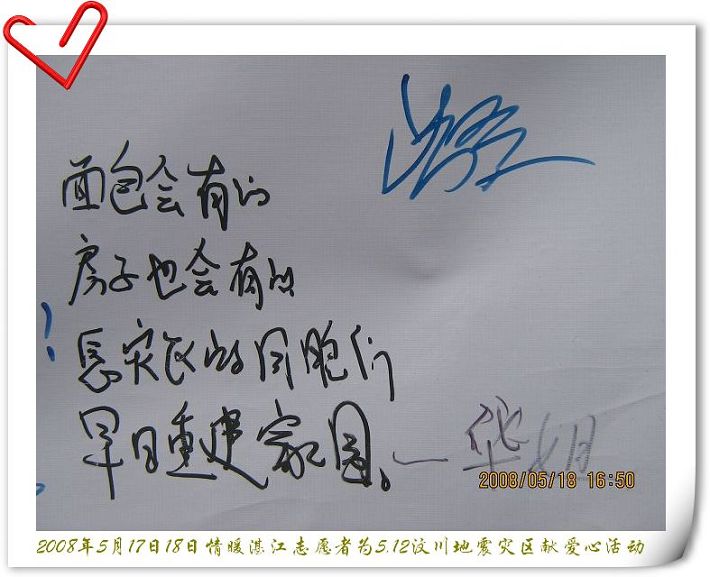 面包会有的
房子也会有的
愿灾区的同胞们
早日重建家园。——华姐
2008/05/18 16:50
2008年5月17日18日情暖湛江志愿者为5.12汶川地震灾区献爱心活动